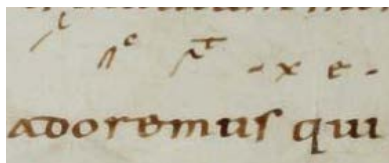 - x e -
adoremus qui